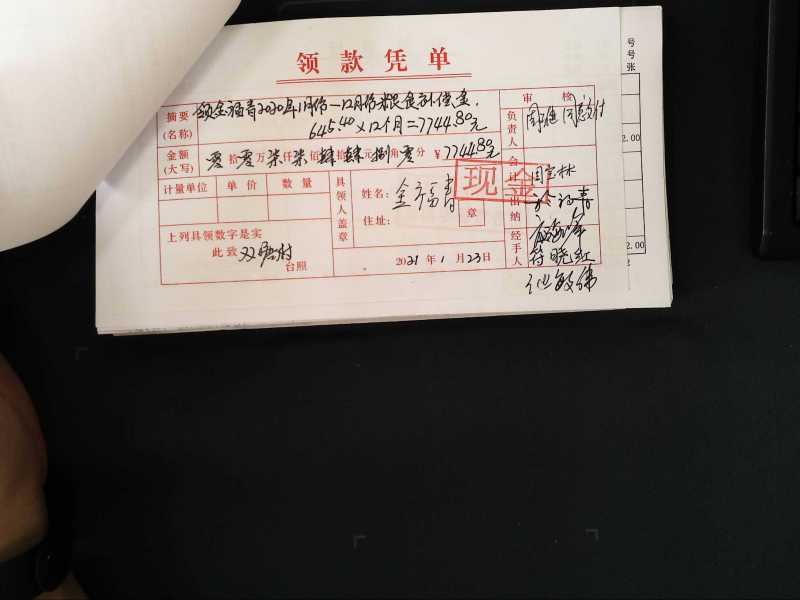 领款凭单
摘要(名称) 领金福青2020年1月份—12月份粮食补偿金.
645.40×12个月=7744.80元
审核
负责人 同意付
金额(大写) 零拾零万柒仟柒佰肆拾肆元捌角零分 ¥7744.80元
计量单位 单价 数量
具领人盖章
姓名: 金福青
住址:
章
现金
会计
出纳
经手人 符晓红
上列具领数字是实
此致 双 村
台照
2021年1月23日
号
号
张
2.00
2.00
2